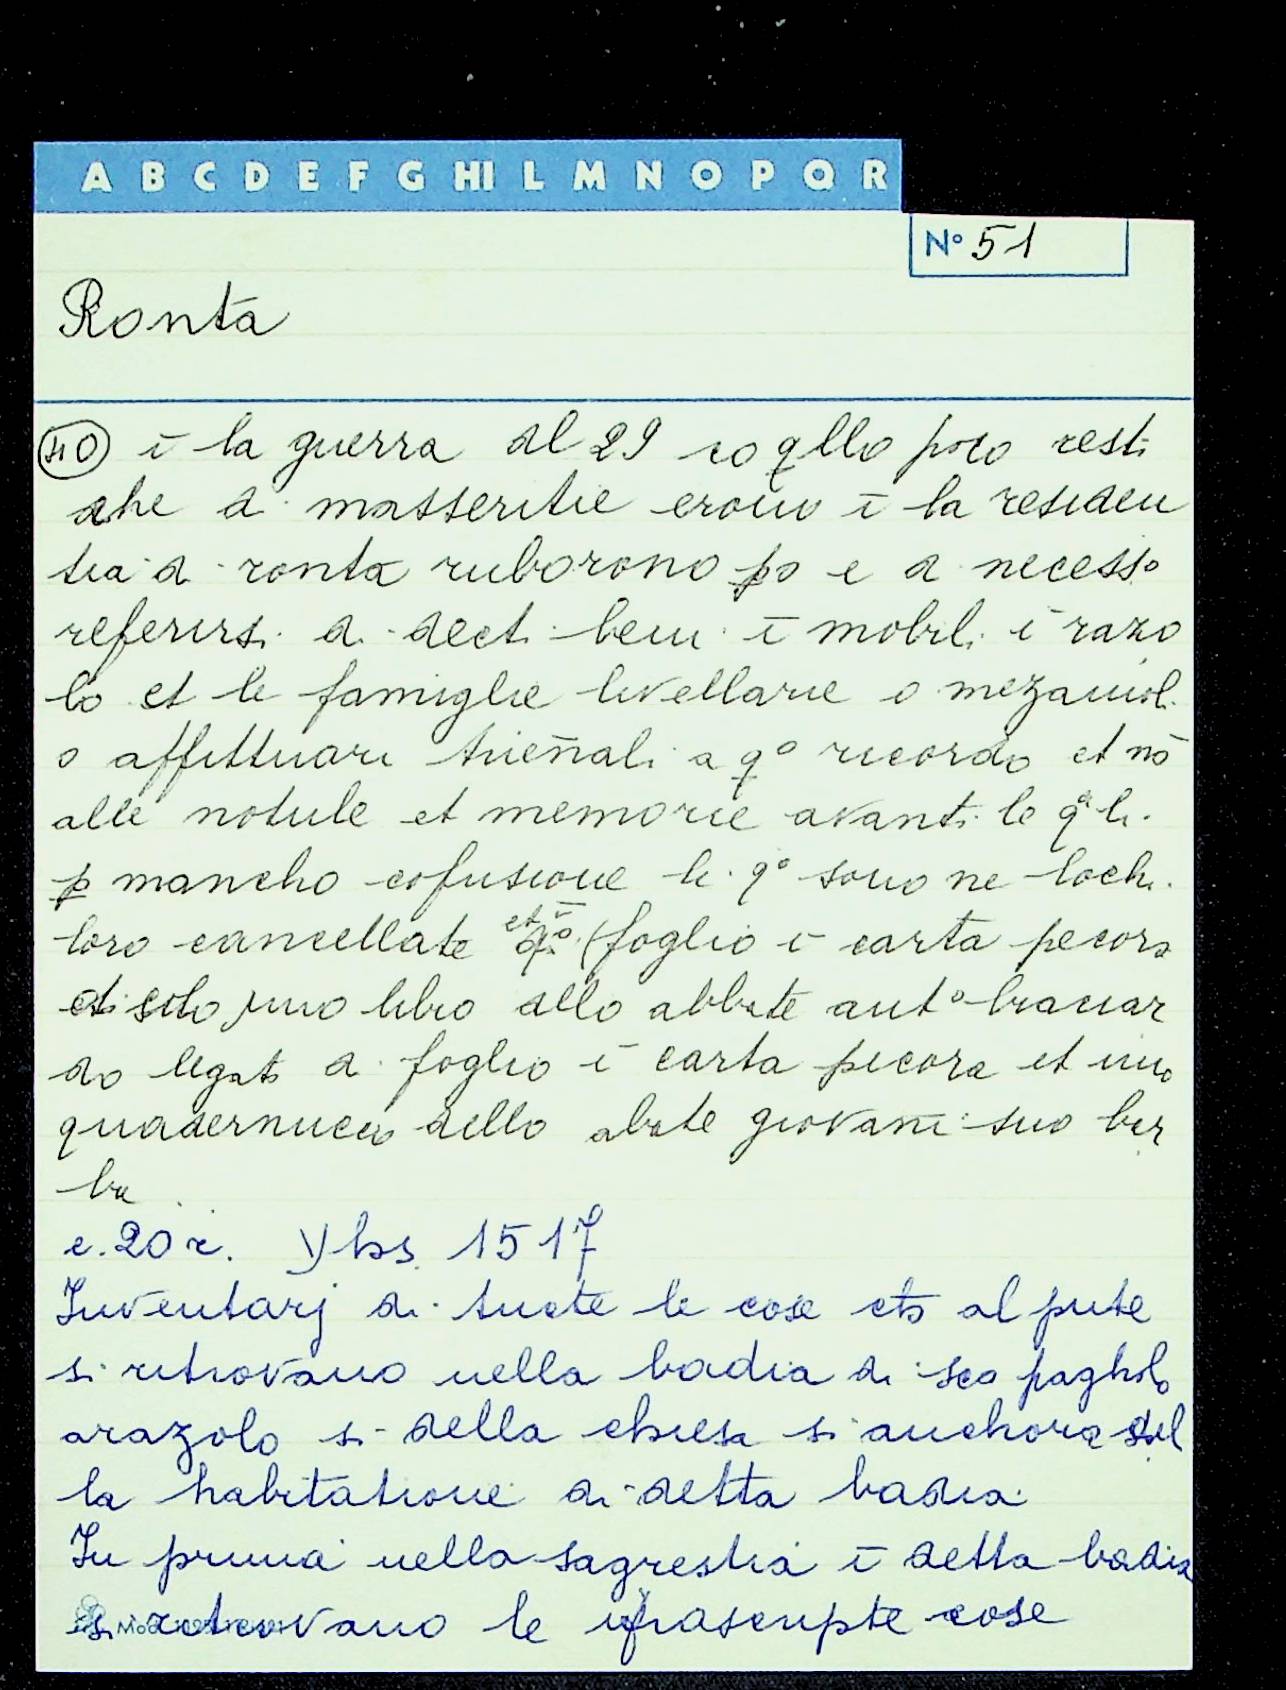 A B C D E F G HI L M N O P Q R
N° 51
Ronta
40 ī la guerra dl 29 co qllo poco resti
che d masseritie erono ī la residen
tia d ronta ruborono po e d necesso
referirsi di decti beni ī mobili ī razo
lo et le famiglie livellarie o mezaiuoli
o affittuari trieñali a q° ricordo et nō
alle notule et memorie avanti le q̃li
p mancho cofusione li q° sono ne lochi
loro cancellate et ī q° foglio ī carta pecora
et sclo uno libro dllo abbate ant° braciar
do legato d foglio ī carta pecora et uno
quadernucio dello abate giovañi suo bar
ba
c. 20 r. Yhs 1517
Inventarj di tucte le cose ch al pnte
si ritrovano nella badia di sco pagholo
arazolo si della chiesa si anchora del
la habitatione di detta badia
In prima nella sagrestia ī detta badia
si ritrovano le ifrascripte cose